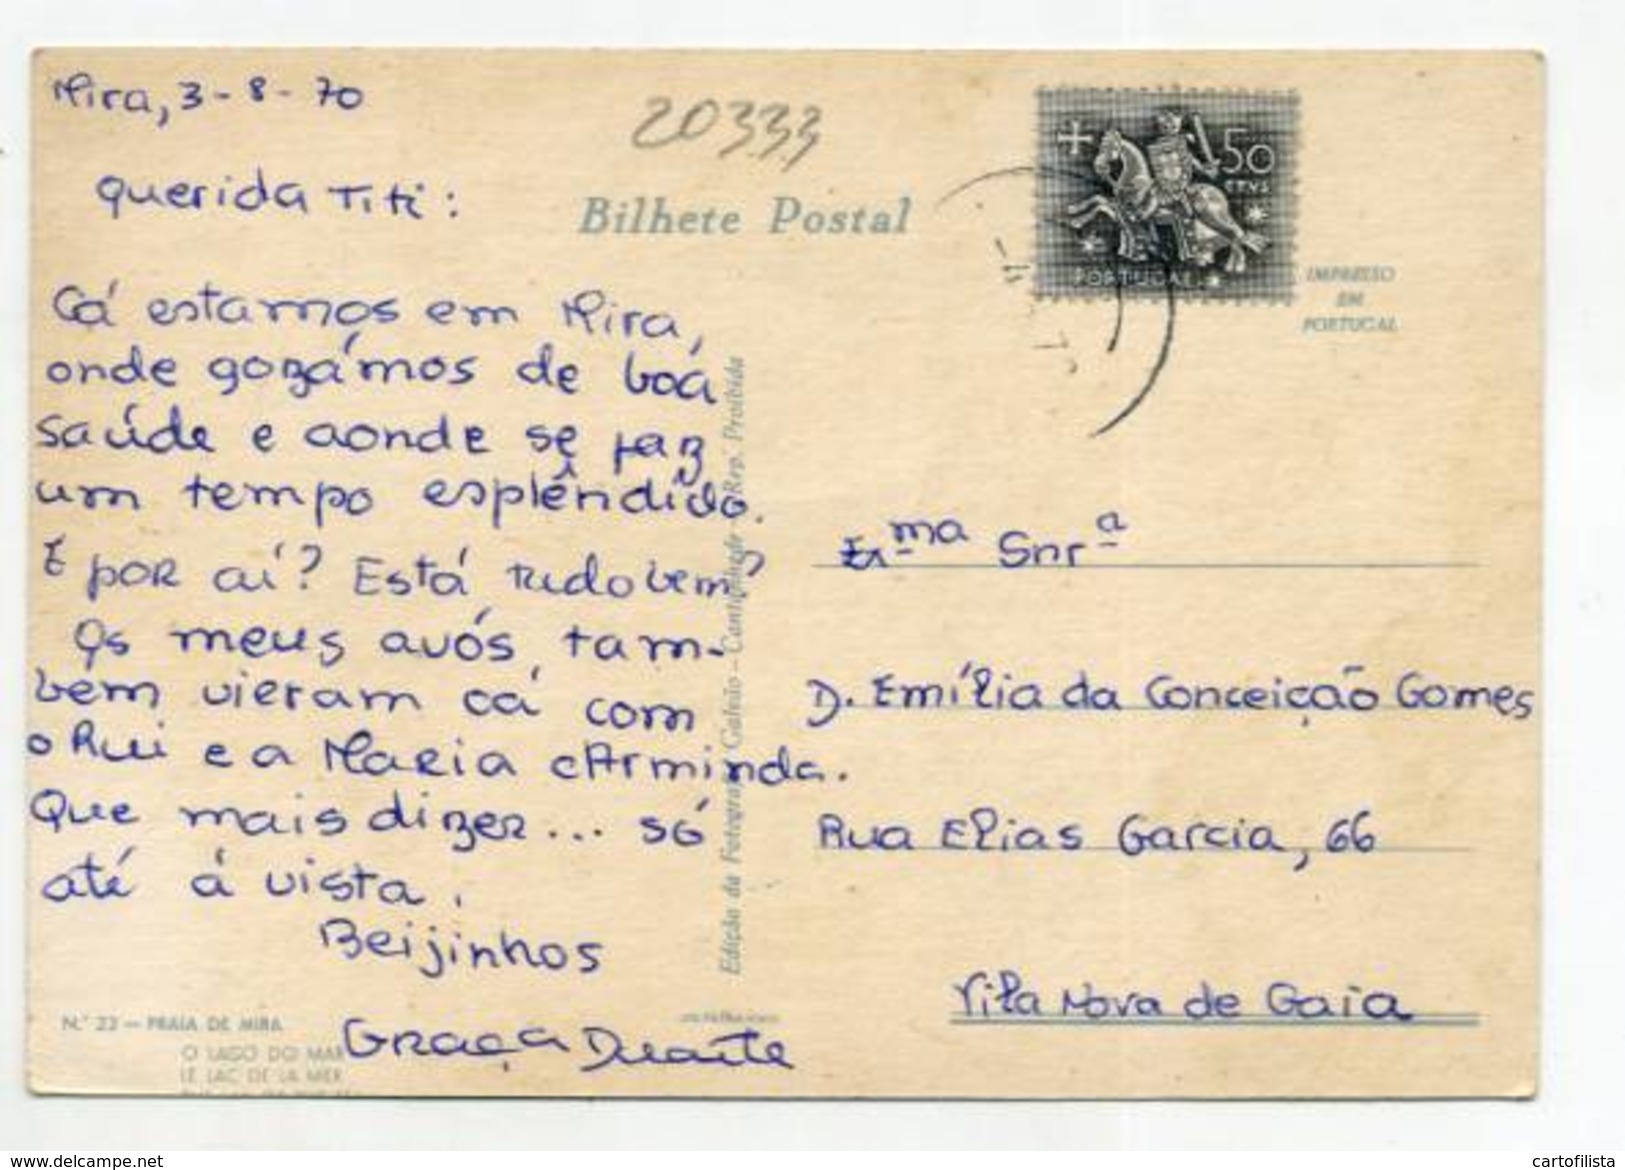 Mira, 3-8-70
20333
querida Titi:
Bilhete Postal
50
CTVS
PORTUGAL
IMPRESSO
EM
PORTUGAL
Cá estamos em Mira,
onde gozámos de boa
saúde e aonde se faz
um tempo esplêndido.
E por aí? Está tudo bem?
Os meus avós, tam-
bem vieram cá com
o Rui e a Maria Arminda.
Que mais dizer... só
até á vista.
Beijinhos
Graça Duarte
Edição da Fotografia Galvão - Cantanhede - Rep. Proibida
Exma Snrª
D. Emília da Conceição Gomes
Rua Elias Garcia, 66
Vila Nova de Gaia
N.º 23 — PRAIA DE MIRA
O LAGO DO MAR
LE LAC DE LA MER
delcampe.net
cartofilista